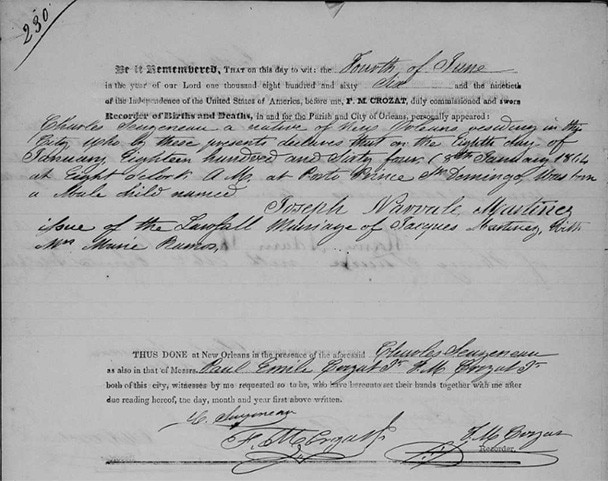 230.
Be it Remembered, THAT on this day to wit: the Fourth of June
in the year of our Lord one thousand eight hundred and sixty Six and the ninetieth
of the Independence of the United States of America, before me, F. M. CROZAT, duly commissioned and sworn
Recorder of Births and Deaths, in and for the Parish and City of Orleans, personally appeared:
Charles a native of New Orleans residing in this
City who by these presents declares that on the Eighth day of
January Eighteen hundred and Sixty four (8th January 1864
at Eight O'clock A.M. at Porto Prince St Domingo, Was born
a Male child named
Joseph Martinez
issue of the Lawfull Marriage of Jacques Martinez, With
Mrs Marie Ramos,
THUS DONE at New Orleans in the presence of the aforesaid Charles
as also in that of Messrs. Paul Emile Crozat Jr F. M. Crozat Jr
both of this city, witnesses by me requested so to be, who have hereunto set their hands together with me after
due reading hereof, the day, month and year first above written.
F. M Crozat Jr
F. M. Crozat
Recorder.